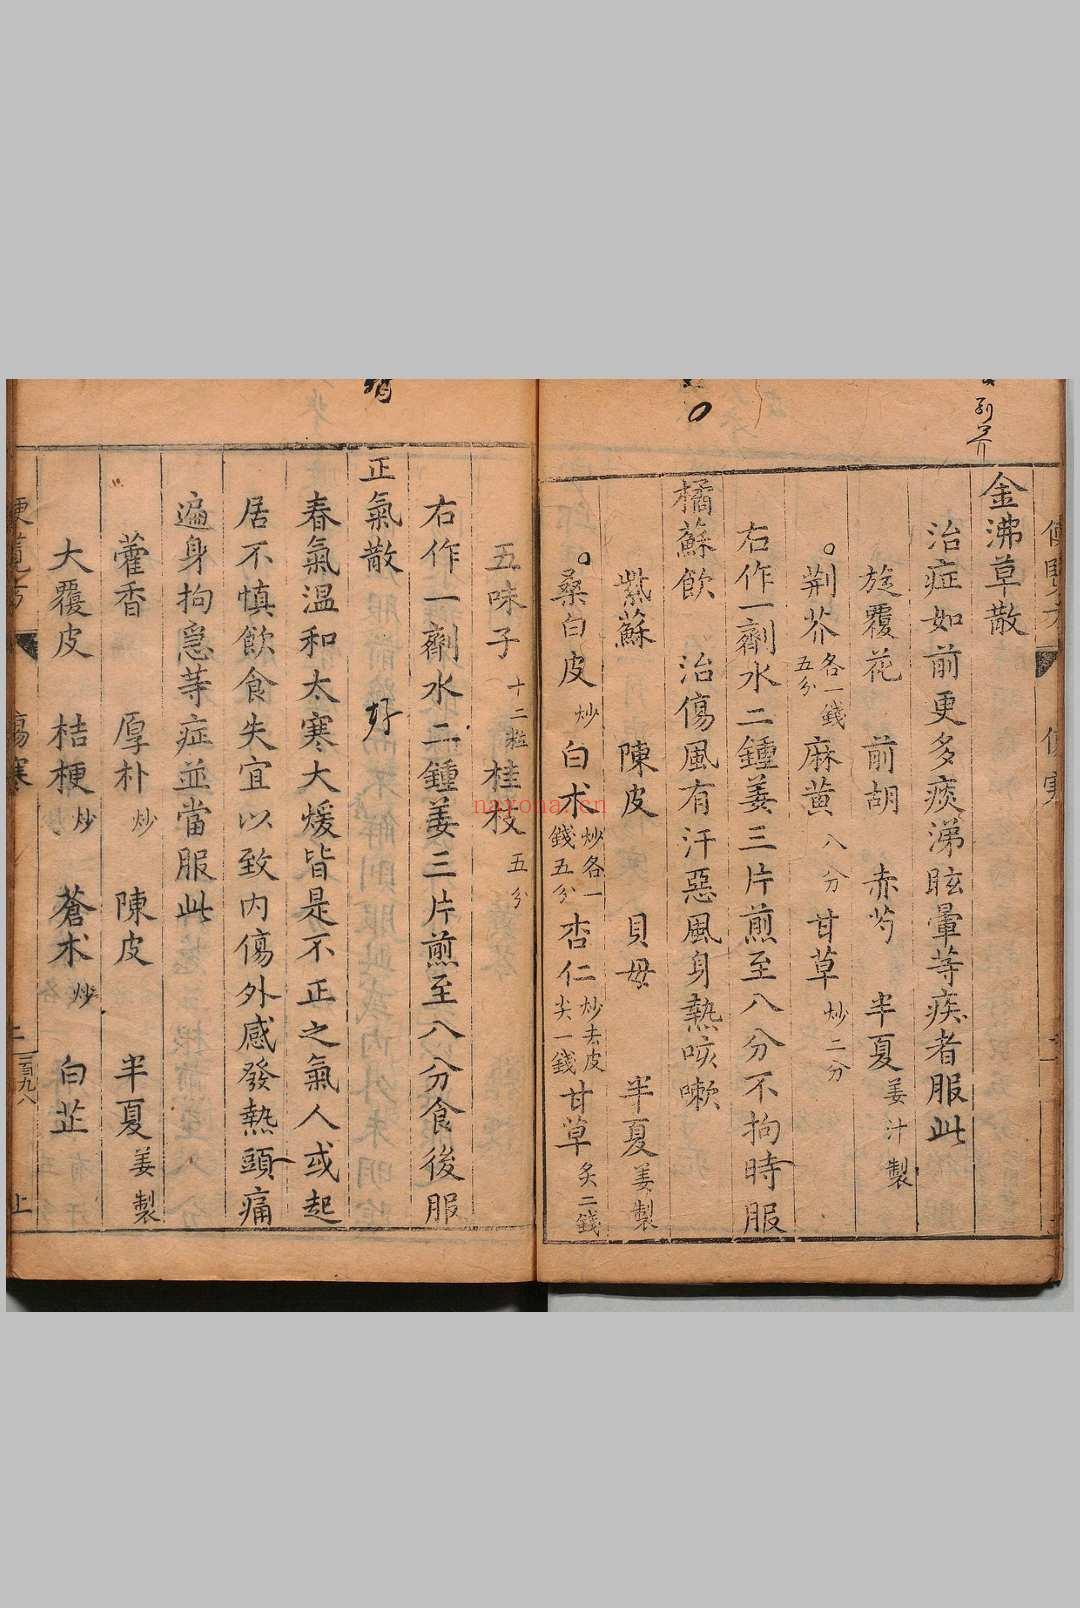 金沸草散
治症如前更多痰涕眩暈等疾者服此
旋覆花 前胡 赤芍 半夏姜汁製
○荆芥各一錢五分 麻黄八分 甘草炒二分
右作一劑水二鍾姜三片煎至八分不拘時服
橘蘇飲 治傷風有汗惡風身熱咳嗽
紫蘇 陳皮 貝母 半夏姜製
○桑白皮炒 白术炒各一錢五分 杏仁炒去皮尖一錢 甘草炙二錢
五味子十二粒 桂枝五分
右作一劑水二鍾姜三片煎至八分食後服
正氣散 好
春氣溫和太寒大煖皆是不正之氣人或起
居不慎飲食失宜以致内傷外感發熱頭痛
遍身拘急等症並當服此
藿香 厚朴炒 陳皮 半夏姜製
大覆皮 桔梗炒 蒼术炒 白芷
便覽方 傷寒 上 三百九八 上
nayona.cn